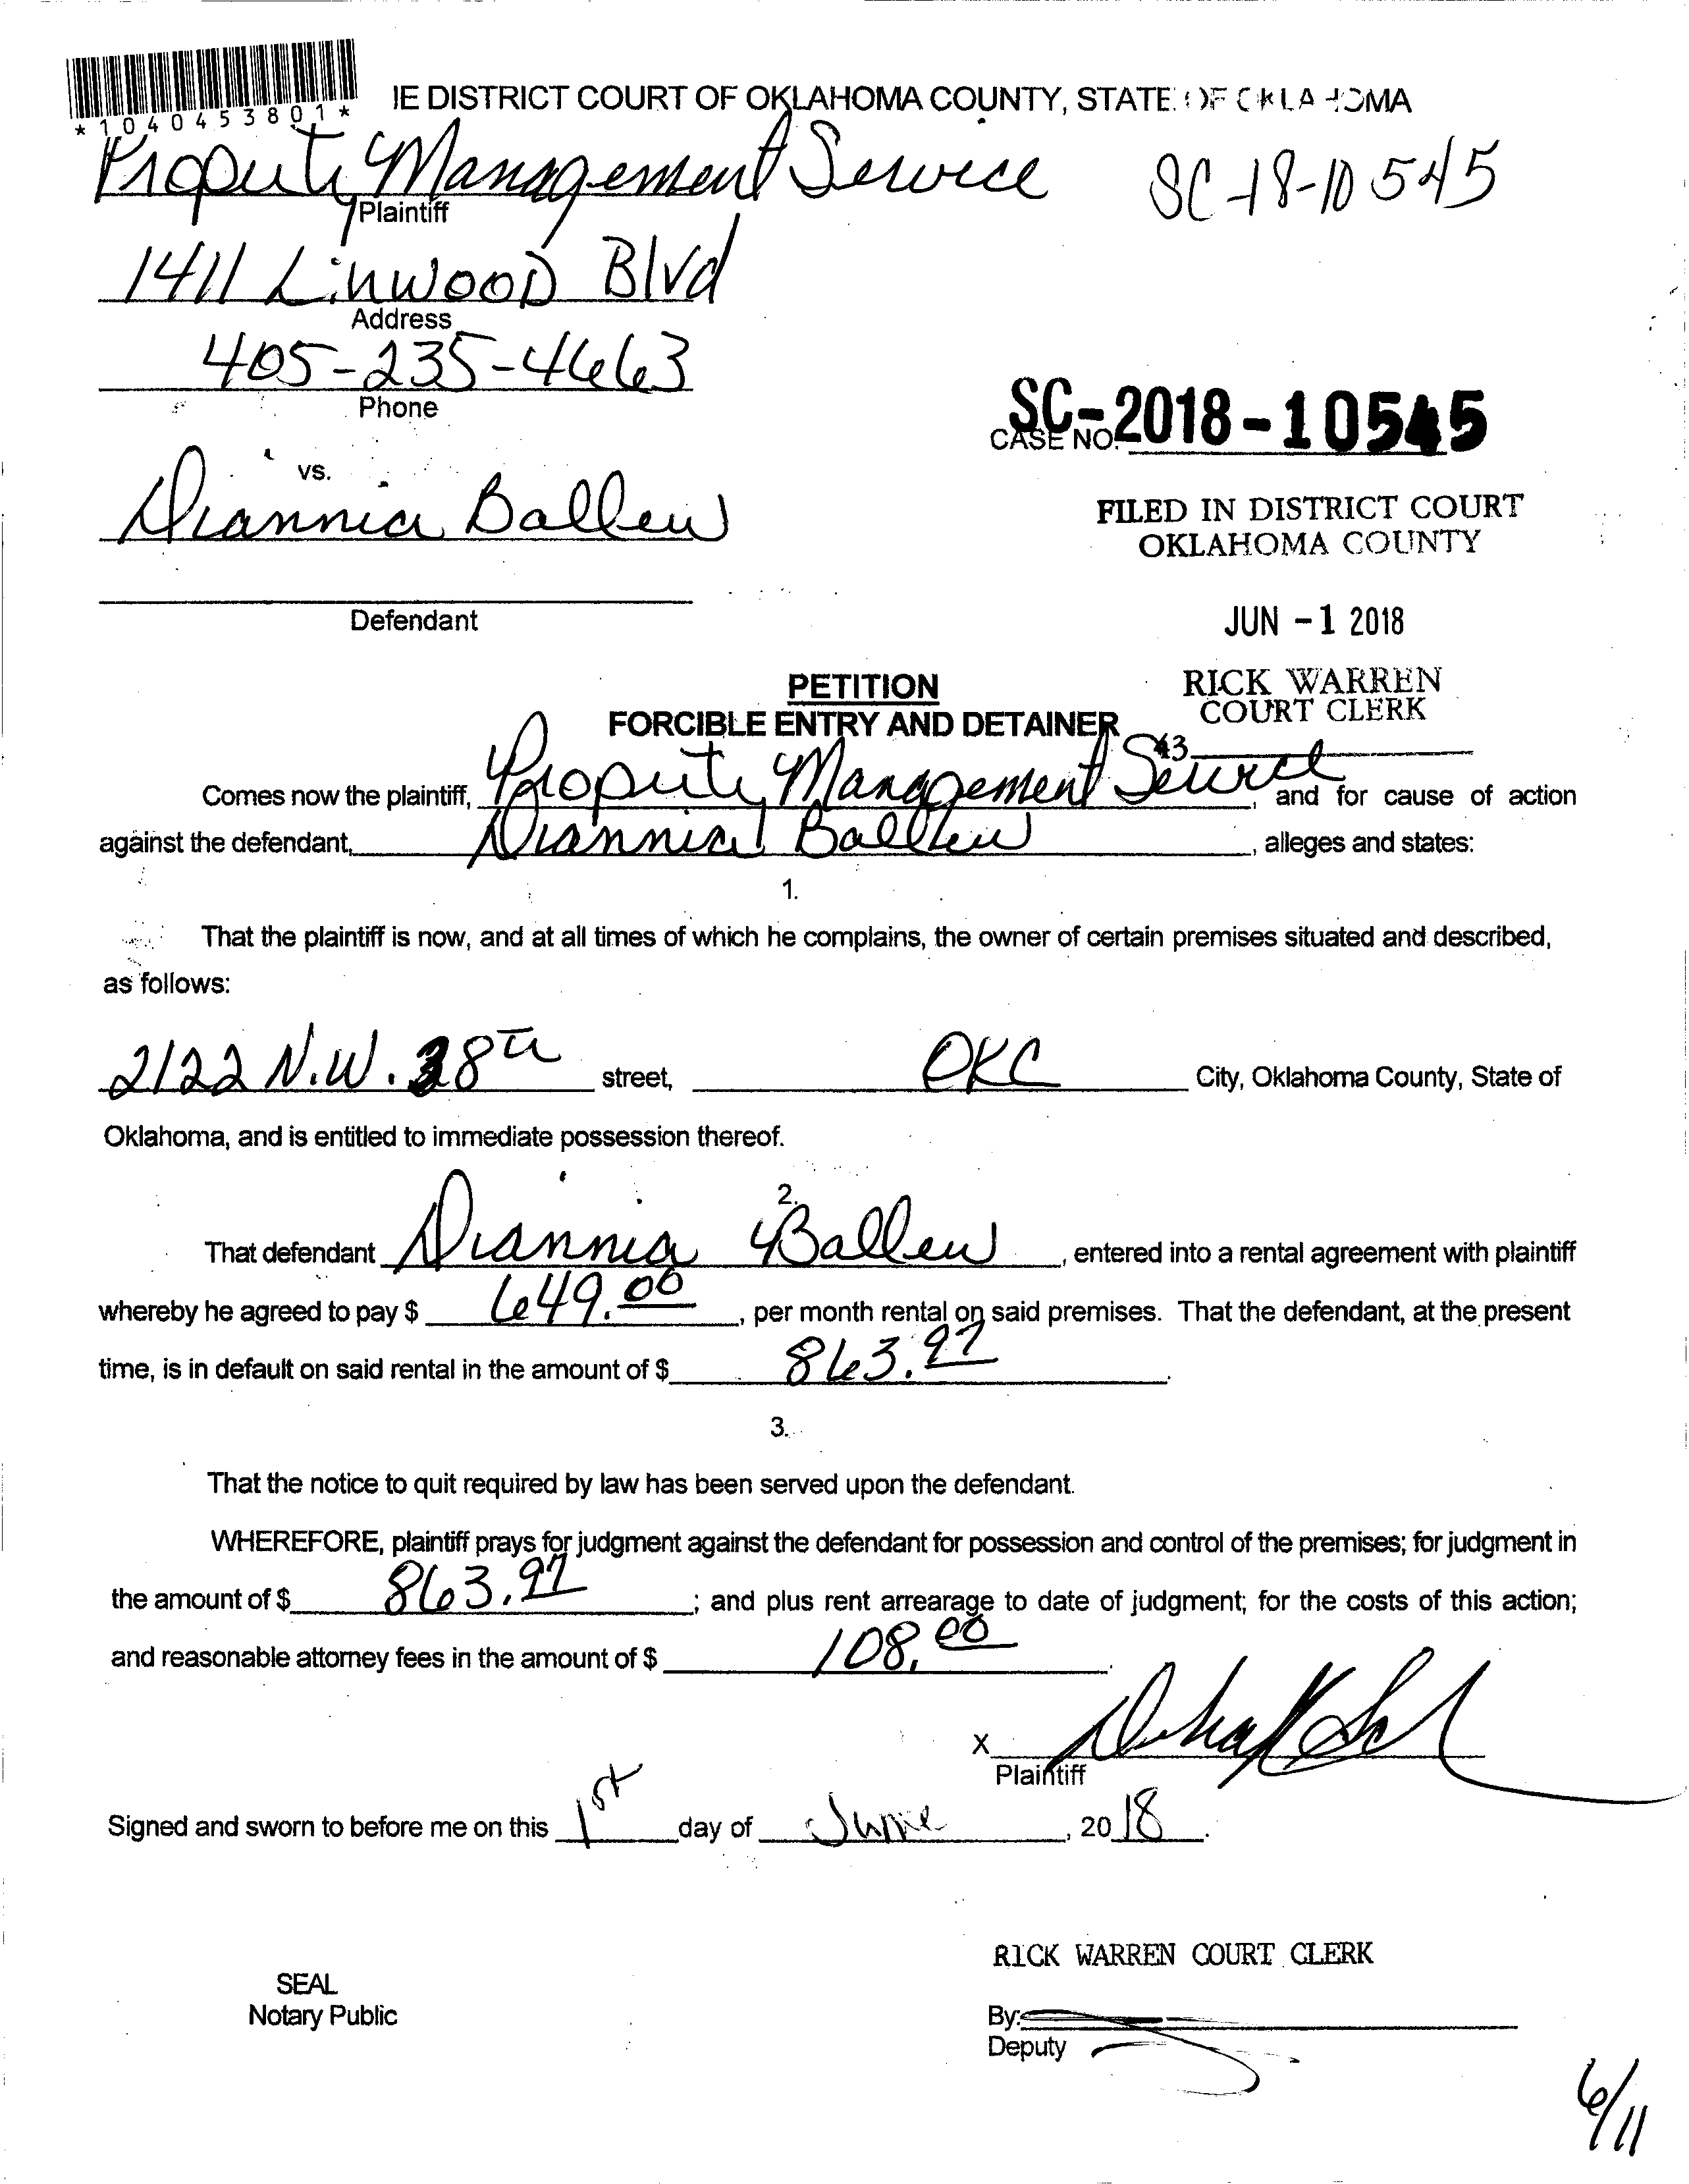 *1040453801*
IE DISTRICT COURT OF OKLAHOMA COUNTY, STATE OF OKLAHOMA
Property Management Service
SC-18-10545
Plaintiff
1411 Linwood Blvd
Address
405-235-4663
Phone
SC-2018-10545
CASE NO.
vs.
Diannia Ballew
FILED IN DISTRICT COURT
OKLAHOMA COUNTY
Defendant
JUN -1 2018
PETITION
RICK WARREN
COURT CLERK
FORCIBLE ENTRY AND DETAINER
43
Comes now the plaintiff, Property Management Service, and for cause of action
against the defendant, Diannia Ballew, alleges and states:
1.
That the plaintiff is now, and at all times of which he complains, the owner of certain premises situated and described,
as follows:
2122 N.W. 38th street, OKC City, Oklahoma County, State of
Oklahoma, and is entitled to immediate possession thereof.
2.
That defendant Diannia Ballew, entered into a rental agreement with plaintiff
whereby he agreed to pay $ 649.00, per month rental on said premises. That the defendant, at the present
time, is in default on said rental in the amount of $ 863.97.
3.
That the notice to quit required by law has been served upon the defendant.
WHEREFORE, plaintiff prays for judgment against the defendant for possession and control of the premises; for judgment in
the amount of $ 863.97; and plus rent arrearage to date of judgment; for the costs of this action;
and reasonable attorney fees in the amount of $ 108.00.
X
Plaintiff
Signed and sworn to before me on this 1st day of June, 2018.
RICK WARREN COURT CLERK
SEAL
Notary Public
By:
Deputy
6/11